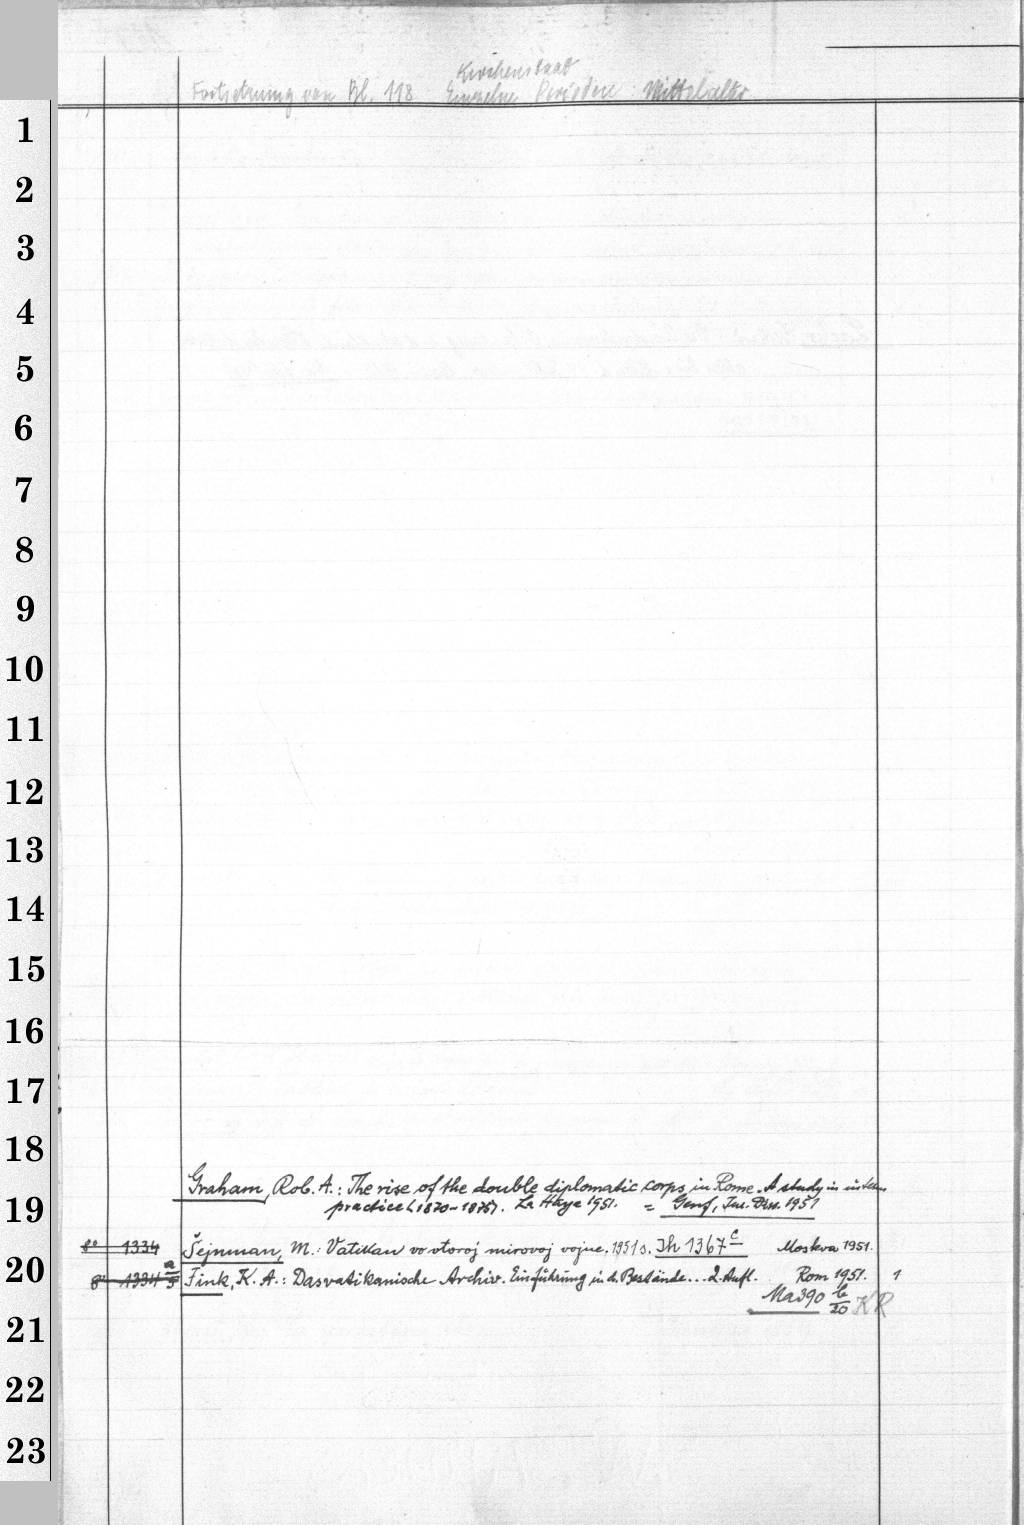 Kirchenstaat
Fortsetzung von Bl. 118 Einzelne Perioden: Mittelalter
1
2
3
4
5
6
7
8
9
10
11
12
13
14
15
16
17
18
Graham, Rob. A.: The rise of the double diplomatic corps in Rome. A study in
19 practice (1870-1875). La Haye 1951. = Genf, Jur. Diss. 1951
8° 1334 Šejnman, M.: Vatikan vo vtoroj mirovoj vojne. 1951 s. Ih 1367 c Moskva 1951.
20 8° 1334 a/5 Fink, K. A.: Das vatikanische Archiv. Einführung in d. Bestände... 2. Aufl. Rom 1951. 1
Ma 390 b/20 KR
21
22
23